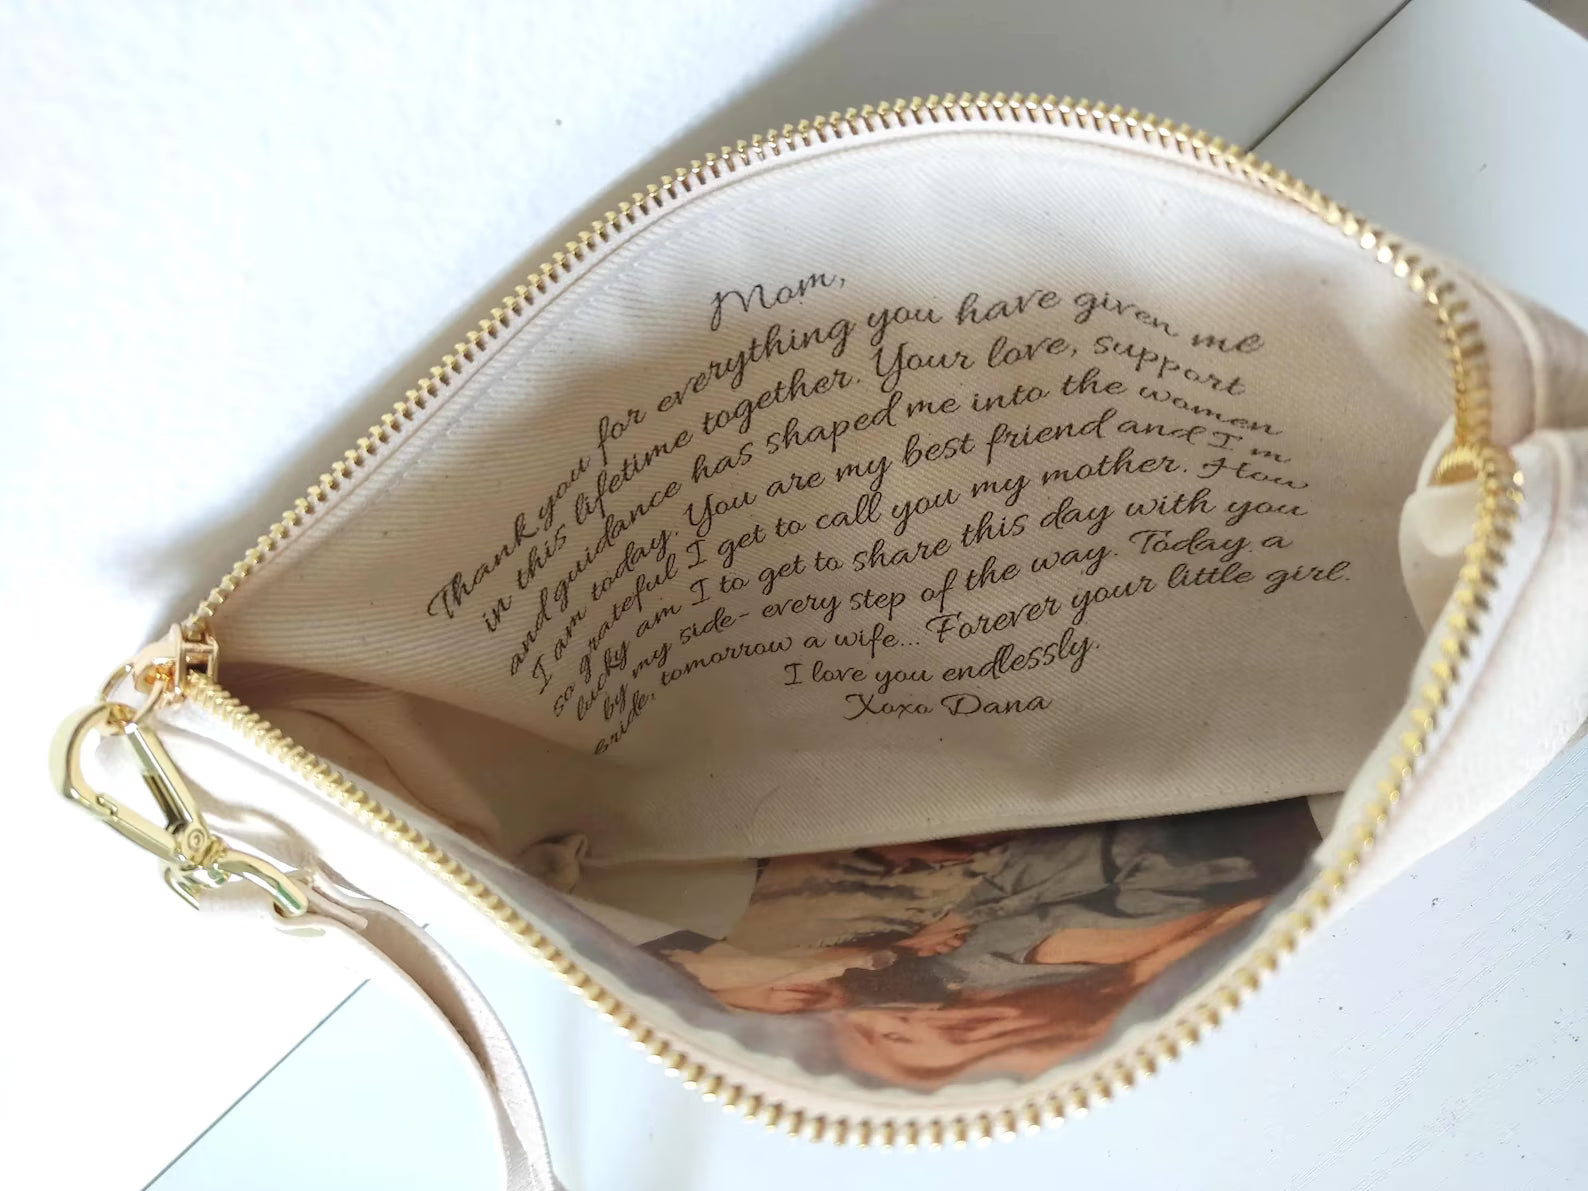 Mom,
Thank you for everything you have given me
in this lifetime together. Your love, support
and guidance has shaped me into the women
I am today. You are my best friend and I'm
so grateful I get to call you my mother. How
lucky am I to get to share this day with you
by my side- every step of the way. Today a
bride, tomorrow a wife... Forever your little girl.
I love you endlessly.
Xoxo Dana